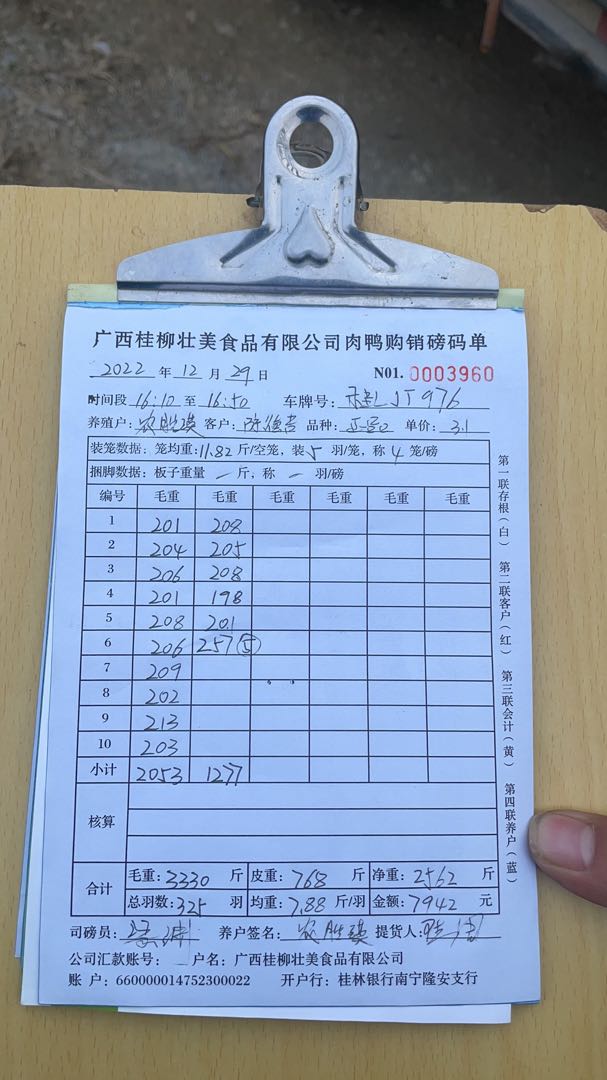 广西桂柳壮美食品有限公司肉鸭购销磅码单
2022 年 12 月 29 日 N01. 0003960
时间段 16:10 至 16:50 车牌号: JT976
养殖户: 农胜瑛 客户: 品种: 单价: 3.1
装笼数据: 笼均重: 11.82 斤/空笼, 装 5 羽/笼, 称 4 笼/磅
捆脚数据: 板子重量 — 斤, 称 — 羽/磅
编号 毛重 毛重 毛重 毛重 毛重 毛重
1 201 208
2 204 205
3 206 208
4 201 198
5 208 201
6 206 257 ⑤
7 209
8 202
9 213
10 203
小计 2053 1277
核算
合计 毛重: 3330 斤 皮重: 768 斤 净重: 2562 斤
总羽数: 325 羽 均重: 7.88 斤/羽 金额: 7942 元
司磅员: 养户签名: 农胜瑛 提货人:
公司汇款账号: 户名: 广西桂柳壮美食品有限公司
账 户: 660000014752300022 开户行: 桂林银行南宁隆安支行
第一联存根(白) 第二联客户(红) 第三联会计(黄) 第四联养户(蓝)